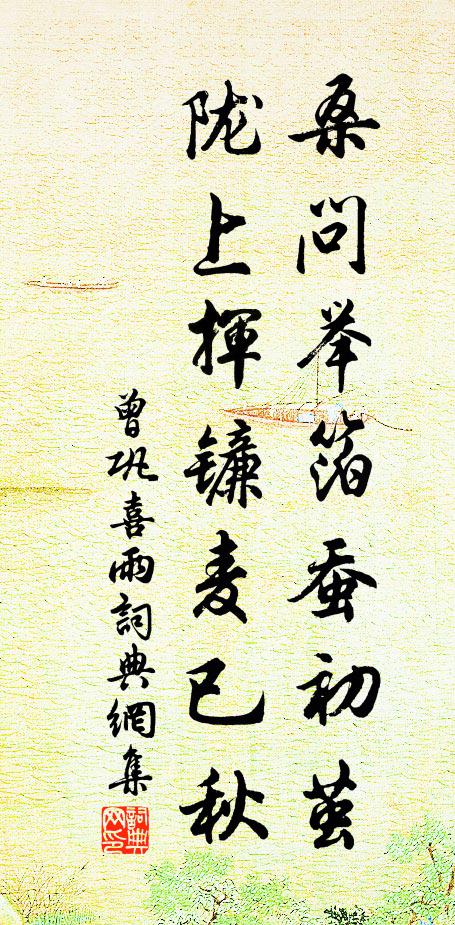 桑问举箔蚕初茧
陇上揮镰麦已秋
曾巩喜雨詞典網集
詞典網印